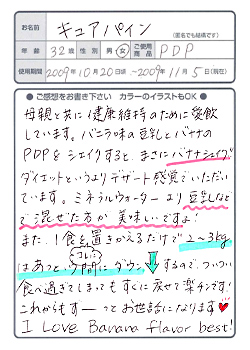 お名前 キュアパイン (匿名でも結構です)
年齢 32歳 性別 男・女 ご使用商品 PDP
使用期間 2009年10月20日頃〜2009年11月5日(現在)
● ご感想をお書き下さい カラーのイラストもOK ●
母親と共に健康維持のために愛飲
しています。バニラ味の豆乳とバナナの
PDPをシェイクすると、まさにバナナシェイク!
ダイエットというよりデザート感覚でいただいて
います。ミネラルウォーターより豆乳など
で混ぜた方が美味しいですよ!
また、1食を置きかえるだけで2〜3kg
はあっという間にダウンするので、ついつい
コレ
食べ過ぎてしまってもすぐに戻せて楽チンです!
これからもずーーっとお世話になります
I Love Banana flavor best!